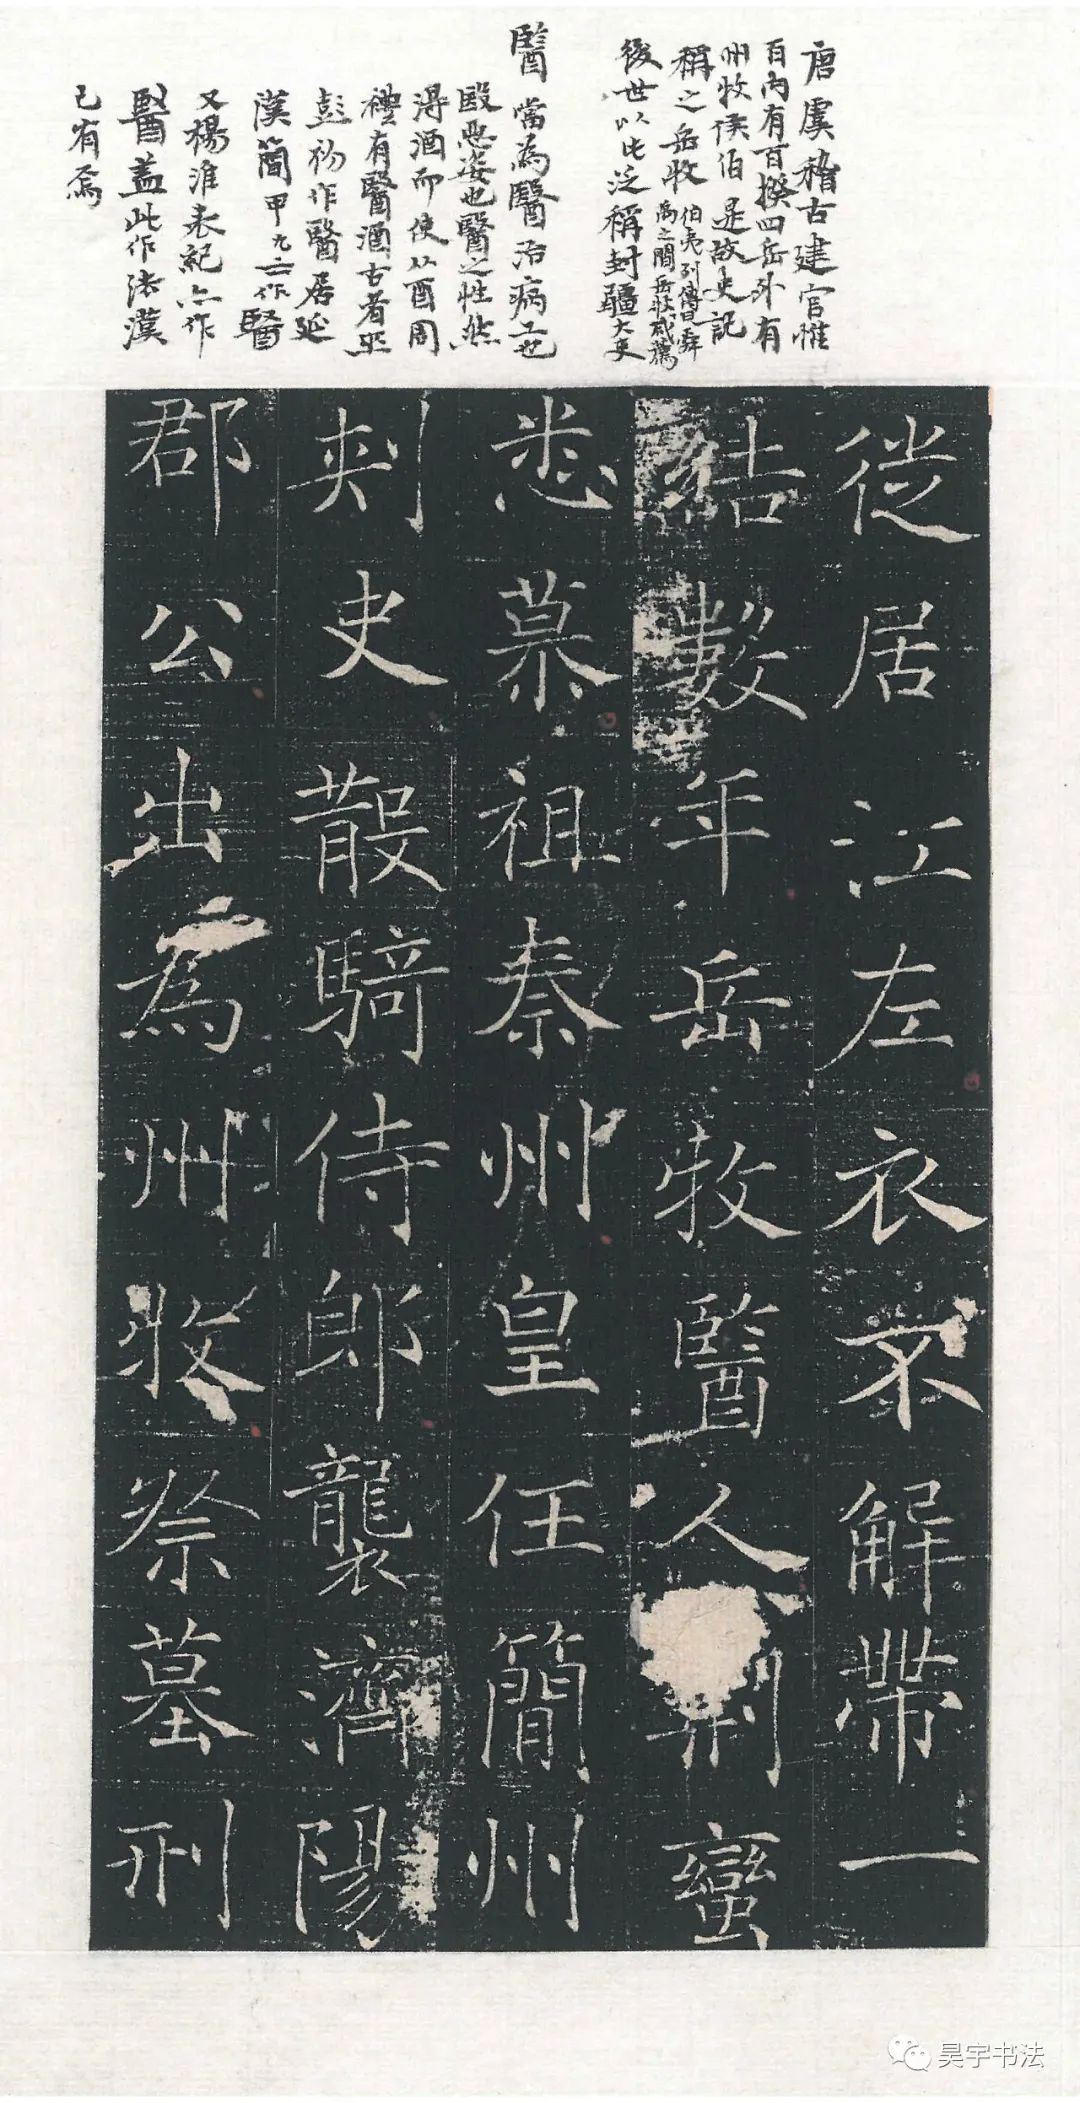 唐虞稽古建官惟
百內有百揆四岳外有
州牧侯伯是故史記
稱之岳牧伯夷列傳曰舜
禹之間岳牧咸薦
後世以此泛稱封疆大吏
醫當為醫治病工也
殹惡姿也醫之性然
得酒而使从酉周
禮有醫酒古者巫
彭初作醫居延
漢簡甲九二作醫
又楊淮表紀亦作
醫蓋此作法漢
已有焉
徙居江左衣不解帶一
結數年岳牧醫人荆蠻
悉慕祖秦州皇任簡州
刺史散騎侍郎襲濟陽
郡公出為州牧祭墓刑
昊宇书法